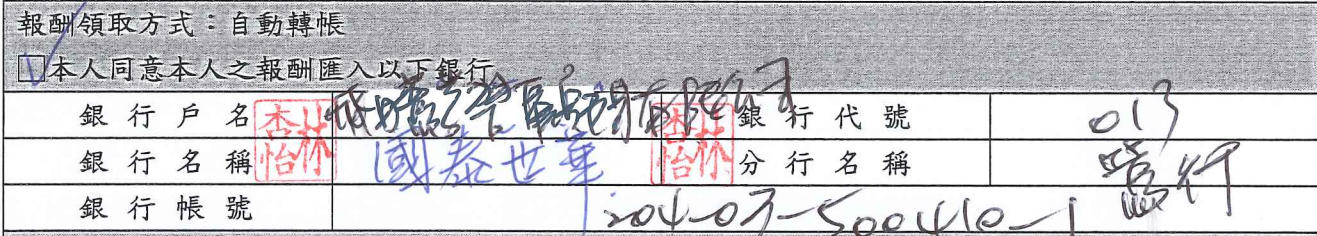 報酬領取方式：自動轉帳
本人同意本人之報酬匯入以下銀行
銀行戶名 有限公司 銀行代號 013
銀行名稱 國泰世華 分行名稱 營行
銀行帳號 204-03-500410-1
林杏怡
林杏怡